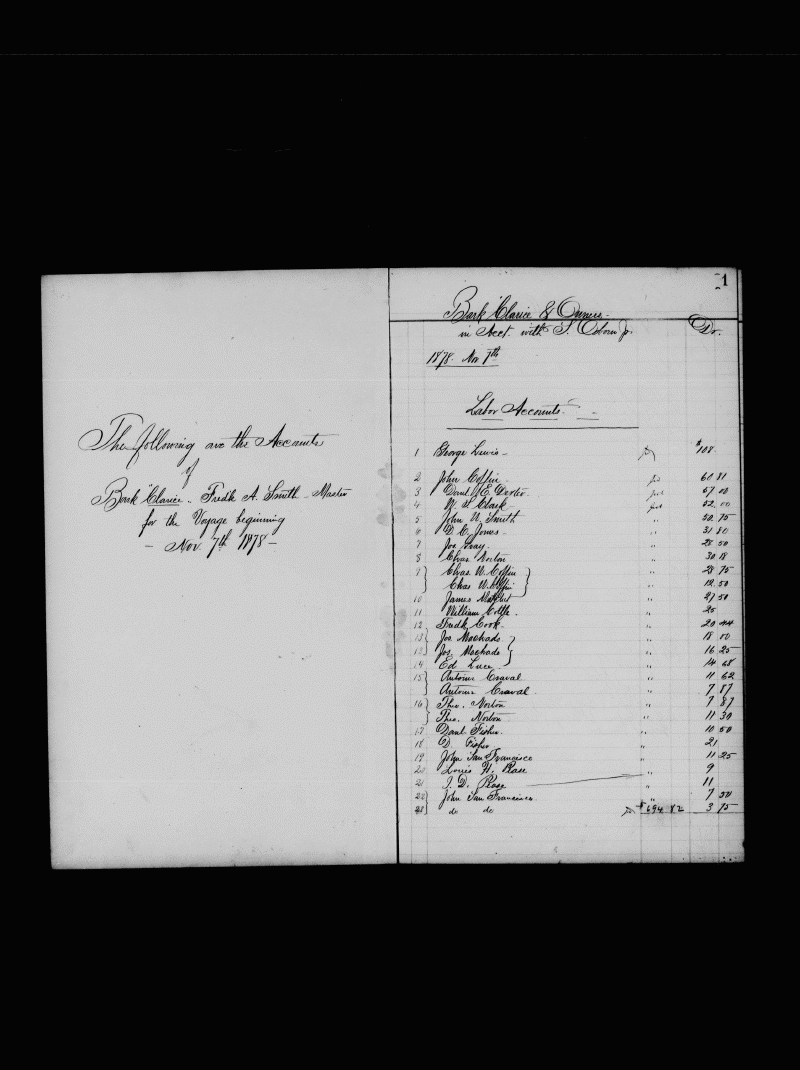 The following are the Accounts
of
Bark "Clarice". Fredk A. Smith - Master
for the Voyage beginning
- Nov. 7th 1878 -
1
Bark Clarice & Owners -
in Acct. with S. Osborn Jr. Dr.
1878. Nov 7th
Labor Accounts.
1 George Lewis - $108.
2 John Coffin 60 81
3 Danl E. Dexter 57 00
4 W. H. Clark 52 00
5 John W. Smith " 50 75
6 D. C. Jones - " 31 80
7 Jos. Gray. " 28 50
8 Chas. Norton " 30 18
9 Chas. W. Coffin " 28 75
Chas W. Coffin " 12 50
10 James " 27 50
11 William " 25
12 Fredk Cook - " 20 44
13 Jos. Machado " 18 00
13 Jos. Machado " 16 25
14 Ed Luce " 14 68
15 Antone Craval " 11 62
Antone Craval " 7 87
16 Theo. Norton " 7 87
Theo. Norton " 11 30
17 Danl Fisher. " 10 50
18 D. Fisher " 21
19 John San Francisco " 11 25
20 Louis H. Pease " 9
21 J. D. Pease " 11
22 John San Francisco " 7 50
23 do do $694 82 3 75